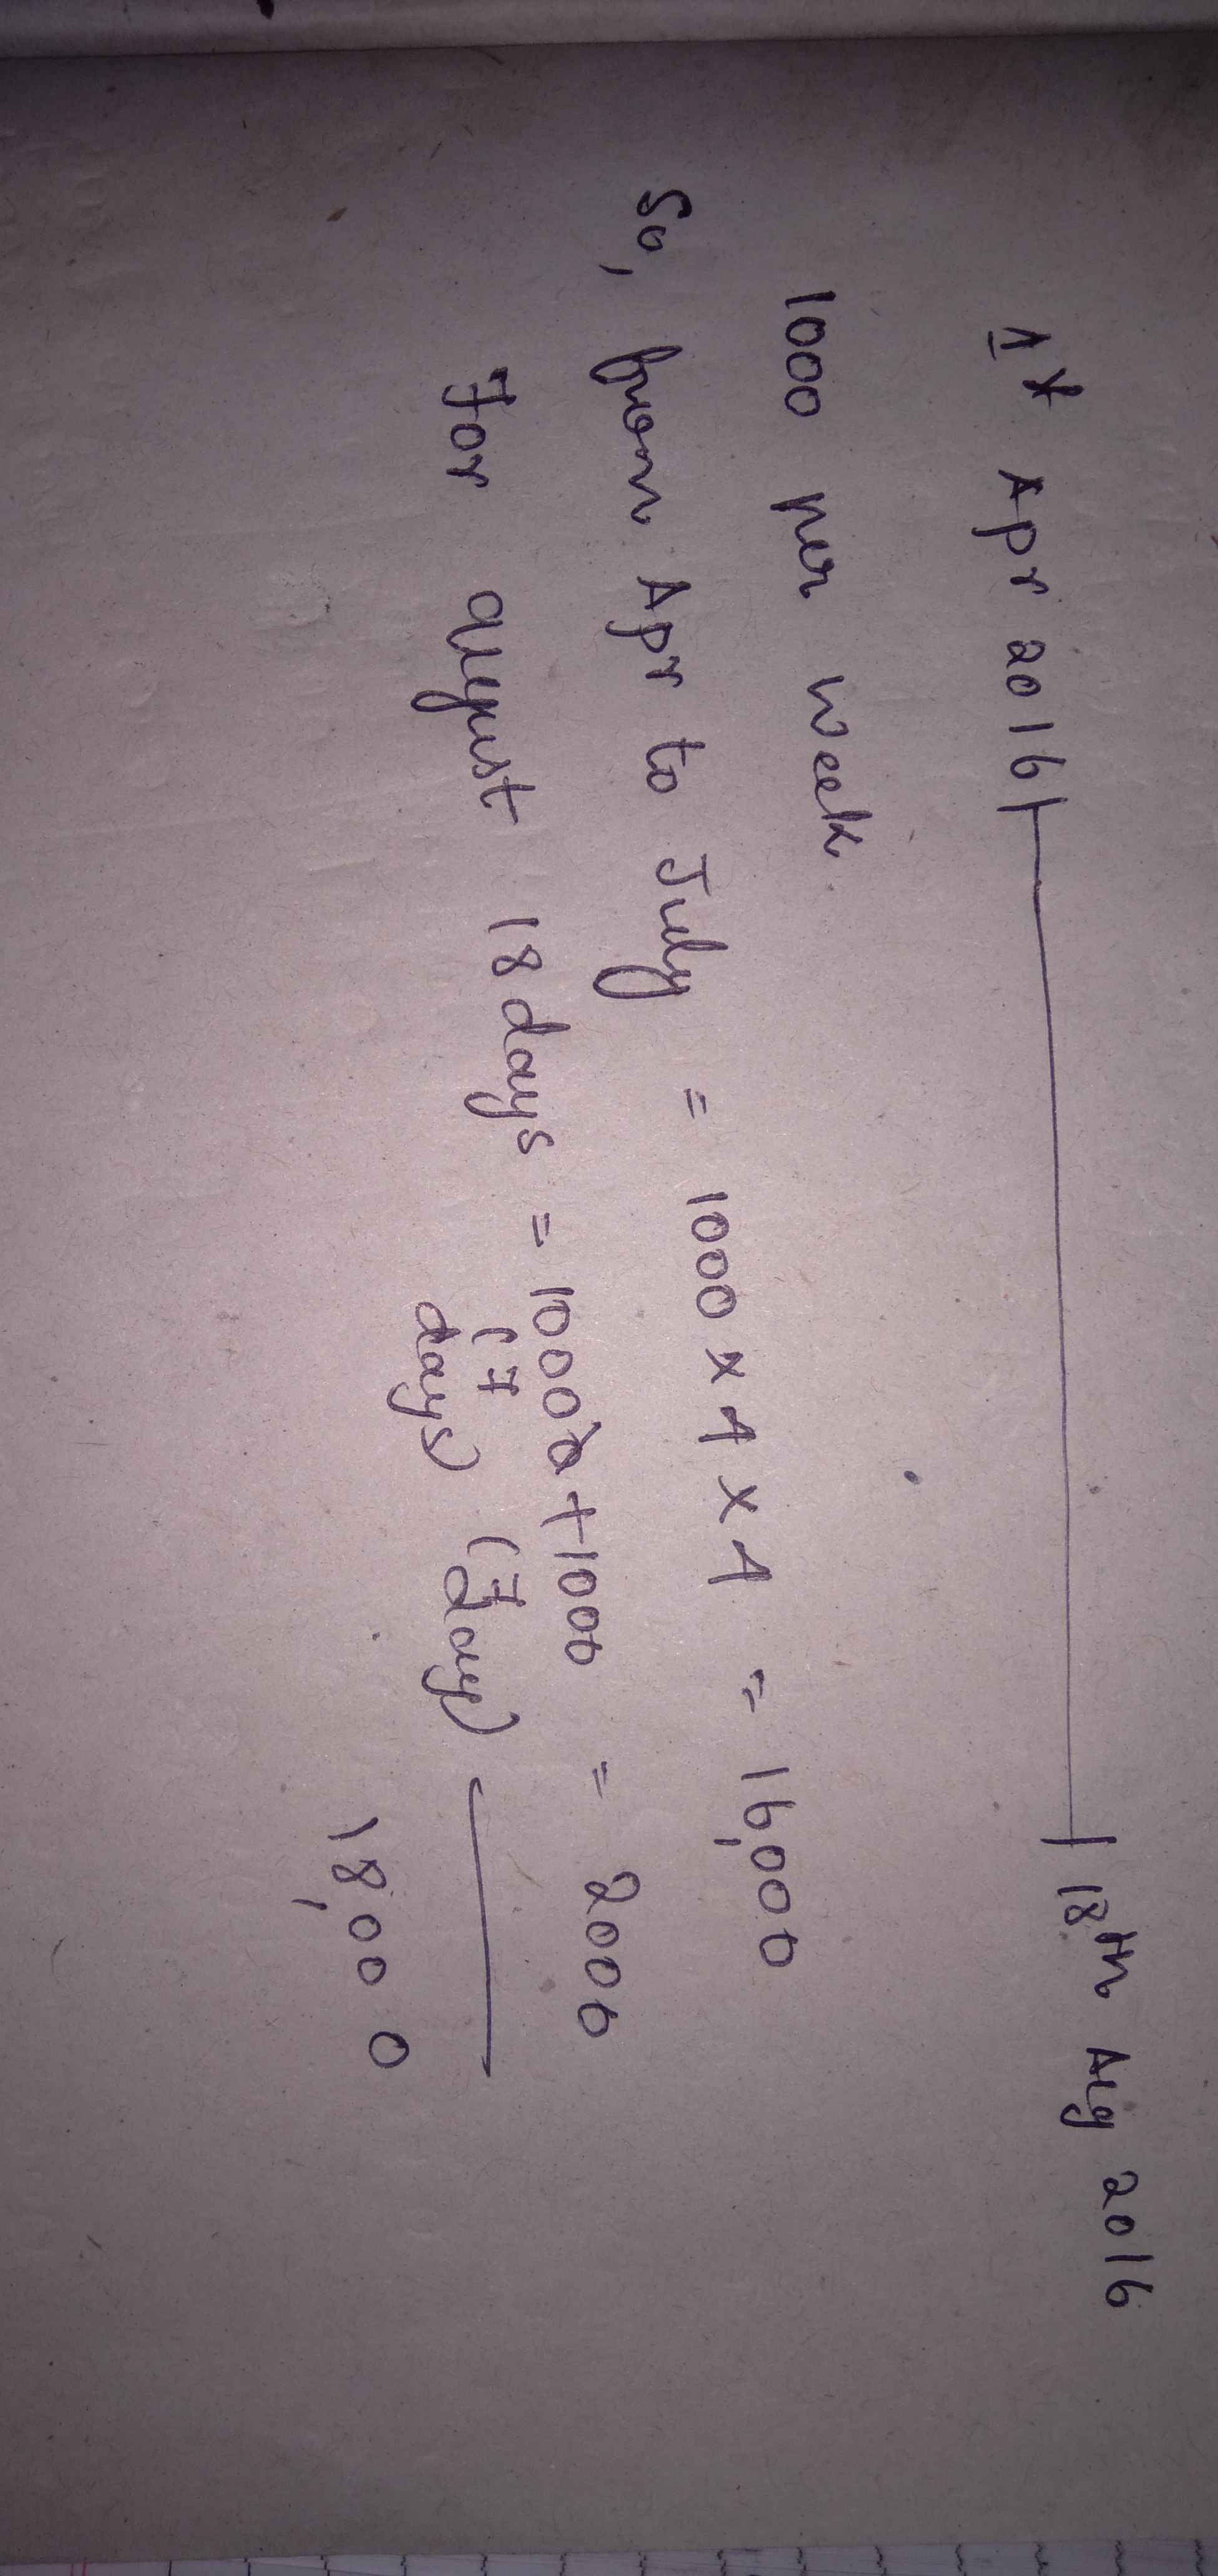 1st Apr 2016 18th Aug 2016
1000 per week
So, from Apr to July = 1000 x 4 x 4 = 16,000
For August 18 days = 1000 + 1000 = 2000
(7 days) (7 days)
18,000